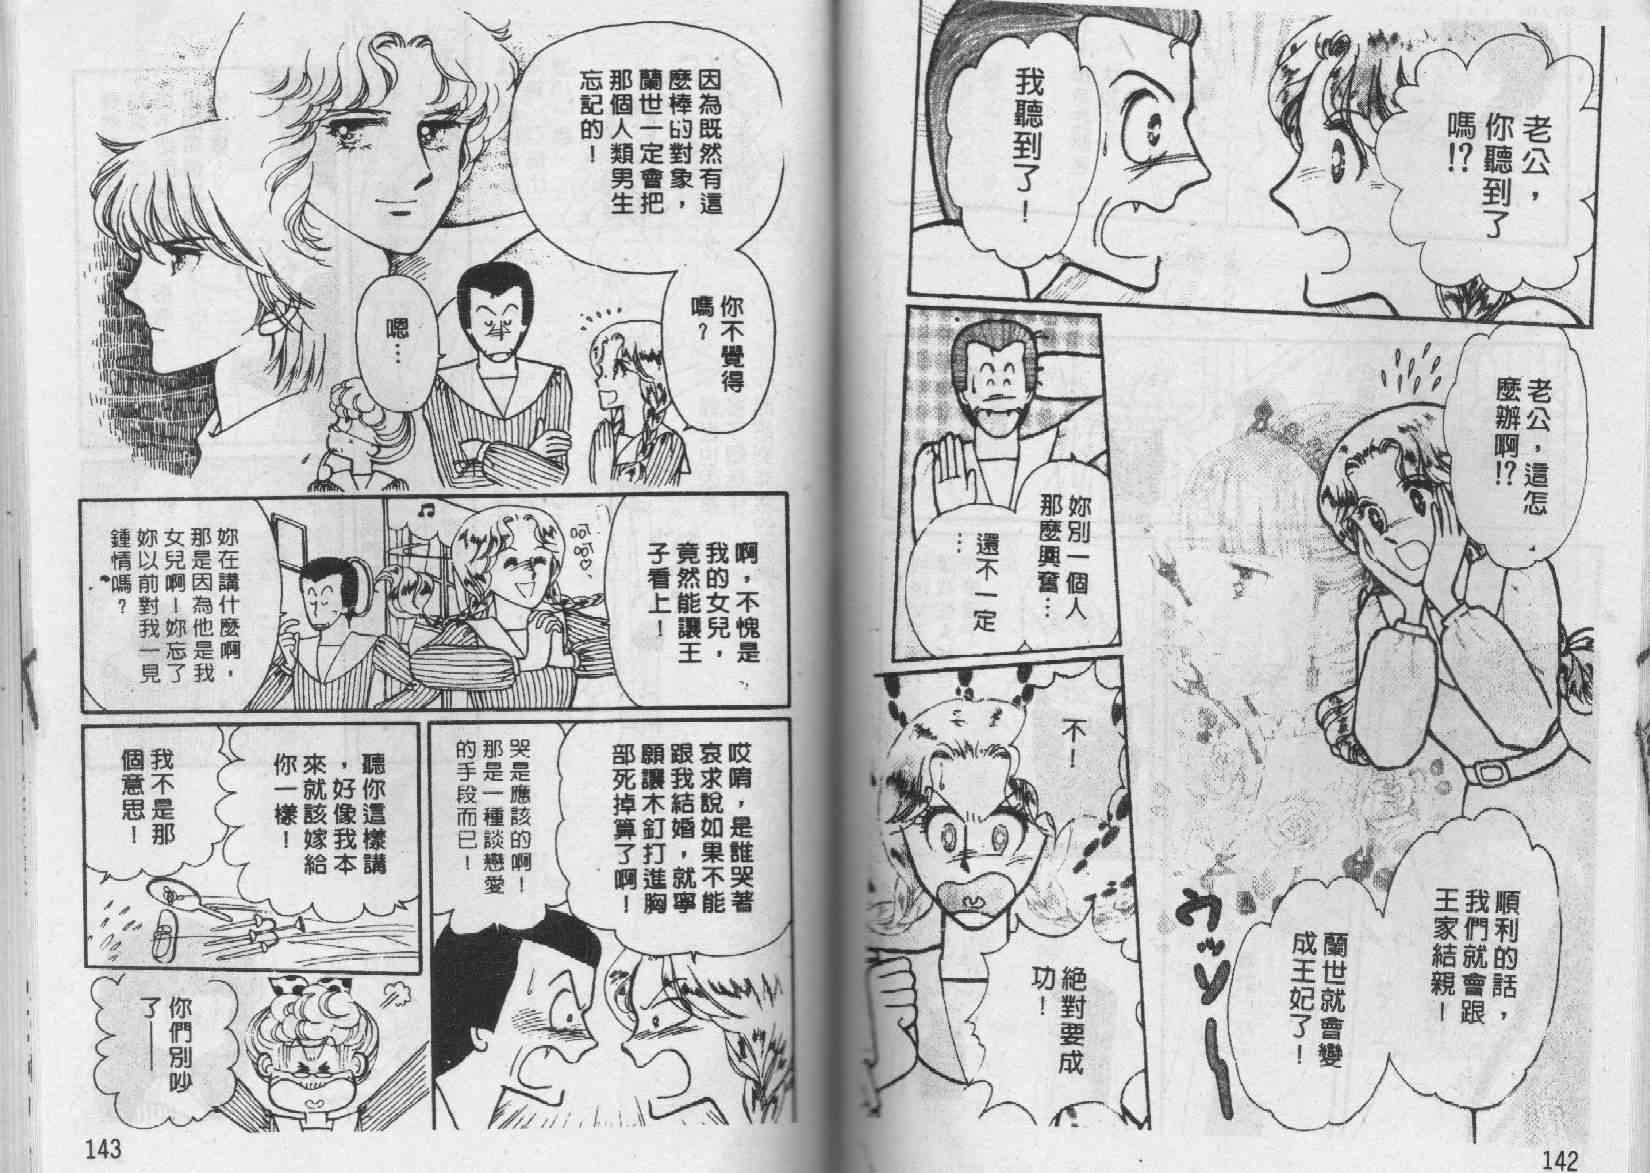 老公，
你聽到了
嗎!?
我聽到了！
老公，這怎
麼辦啊!?
妳別一個人
那麼興奮…
還不一定
…
順利的話，
我們就會跟
王家結親！
蘭世就會變
成王妃了！
不！
絕對要成
功！
142
因為既然有這
麼棒的對象，
蘭世一定會把
那個人類男生
忘記的！
你不覺得
嗎？
嗯…
啊，不愧是
我的女兒，
竟然能讓王
子看上！
呵呵♡
♫
妳在講什麼啊，
那是因為他是我
女兒啊！妳忘了
妳以前對我一見
鍾情嗎？
哎唷，是誰哭著
哀求說如果不能
跟我結婚，就寧
願讓木釘打進胸
部死掉算了啊！
哭是應該的啊！
那是一種談戀愛
的手段而已！
聽你這樣講
，好像我本
來就該嫁給
你一樣！
我不是那
個意思！
你們別吵
了——
143